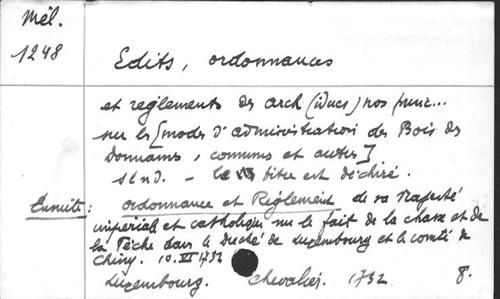 Mél.
1248
Edits, ordonnances
et reglements des arch(iducs) nos princ...
sur les [modes d'administration des Bois des
Domaines, communs et autres]
s l n d. - le titre est déchiré.
Ensuite: ordonnance et Réglement de sa Majesté
impériale et catholique sur le fait de la chasse et de
la Pêche dans le duché de Luxembourg et le comté de
Chiny. 10. VI 1732
Luxembourg. Chevalier. 1732 8.